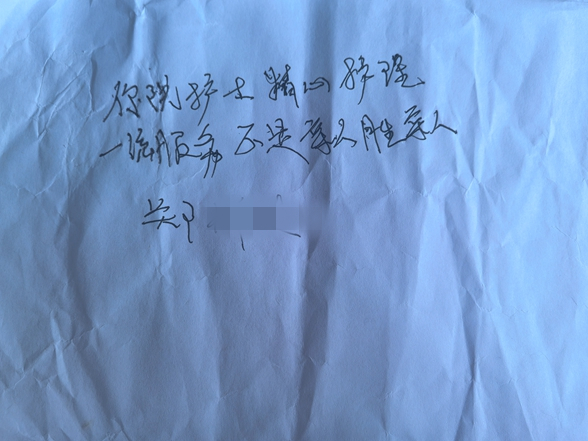 你院护士精心护理
一流服务不是亲人胜亲人
郑